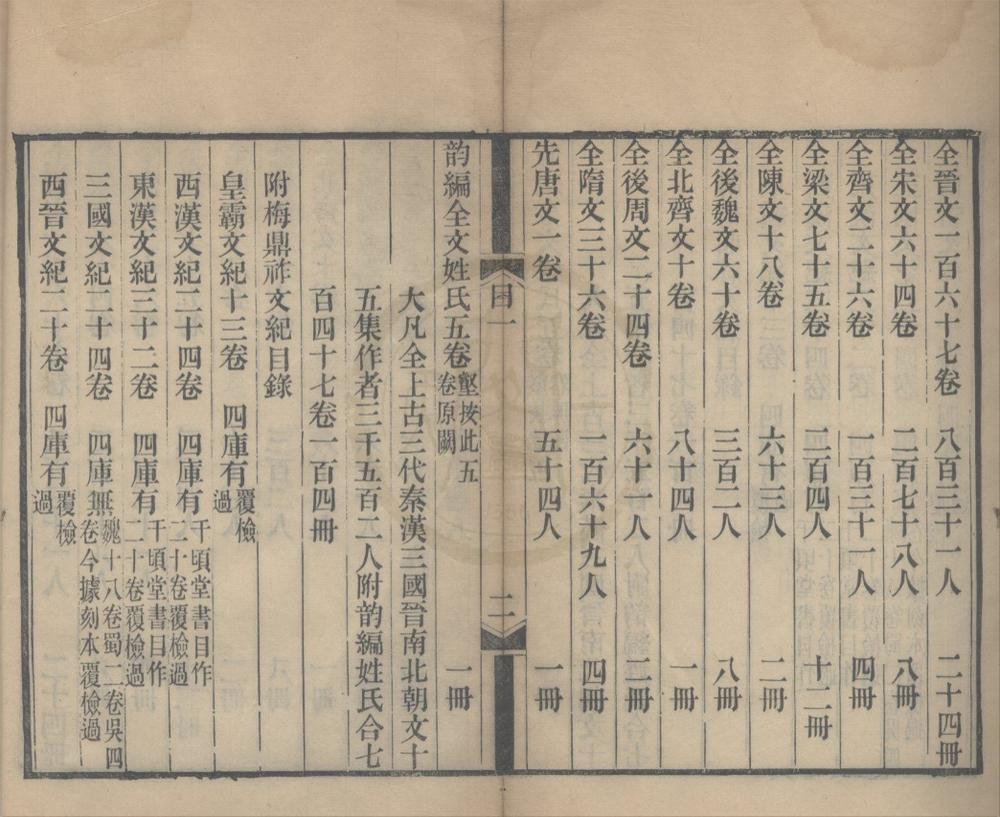 全晉文一百六十七卷　八百三十一人　二十四冊
全宋文六十四卷　二百七十八人　八冊
全齊文二十六卷　一百三十一人　四冊
全梁文七十五卷　二百四人　十二冊
全陳文十八卷　六十三人　二冊
全後魏文六十卷　三百二人　八冊
全北齊文十卷　八十四人　一冊
全後周文二十四卷　六十一人　二冊
全隋文三十六卷　一百六十九人　四冊
先唐文一卷　五十四人　一冊
目一　二
韵編全文姓氏五卷　壑按此五卷原闕　一冊
大凡全上古三代秦漢三國晉南北朝文十
五集作者三千五百二人附韵編姓氏合七
百四十七卷一百四冊
附梅鼎祚文紀目錄
皇霸文紀十三卷　四庫有　覆檢過
西漢文紀二十四卷　四庫有　千頃堂書目作二十卷覆檢過
東漢文紀三十二卷　四庫有　千頃堂書目作二十卷覆檢過
三國文紀二十四卷　四庫無　魏十八卷蜀二卷吳四卷今據刻本覆檢過
西晉文紀二十卷　四庫有　覆檢過